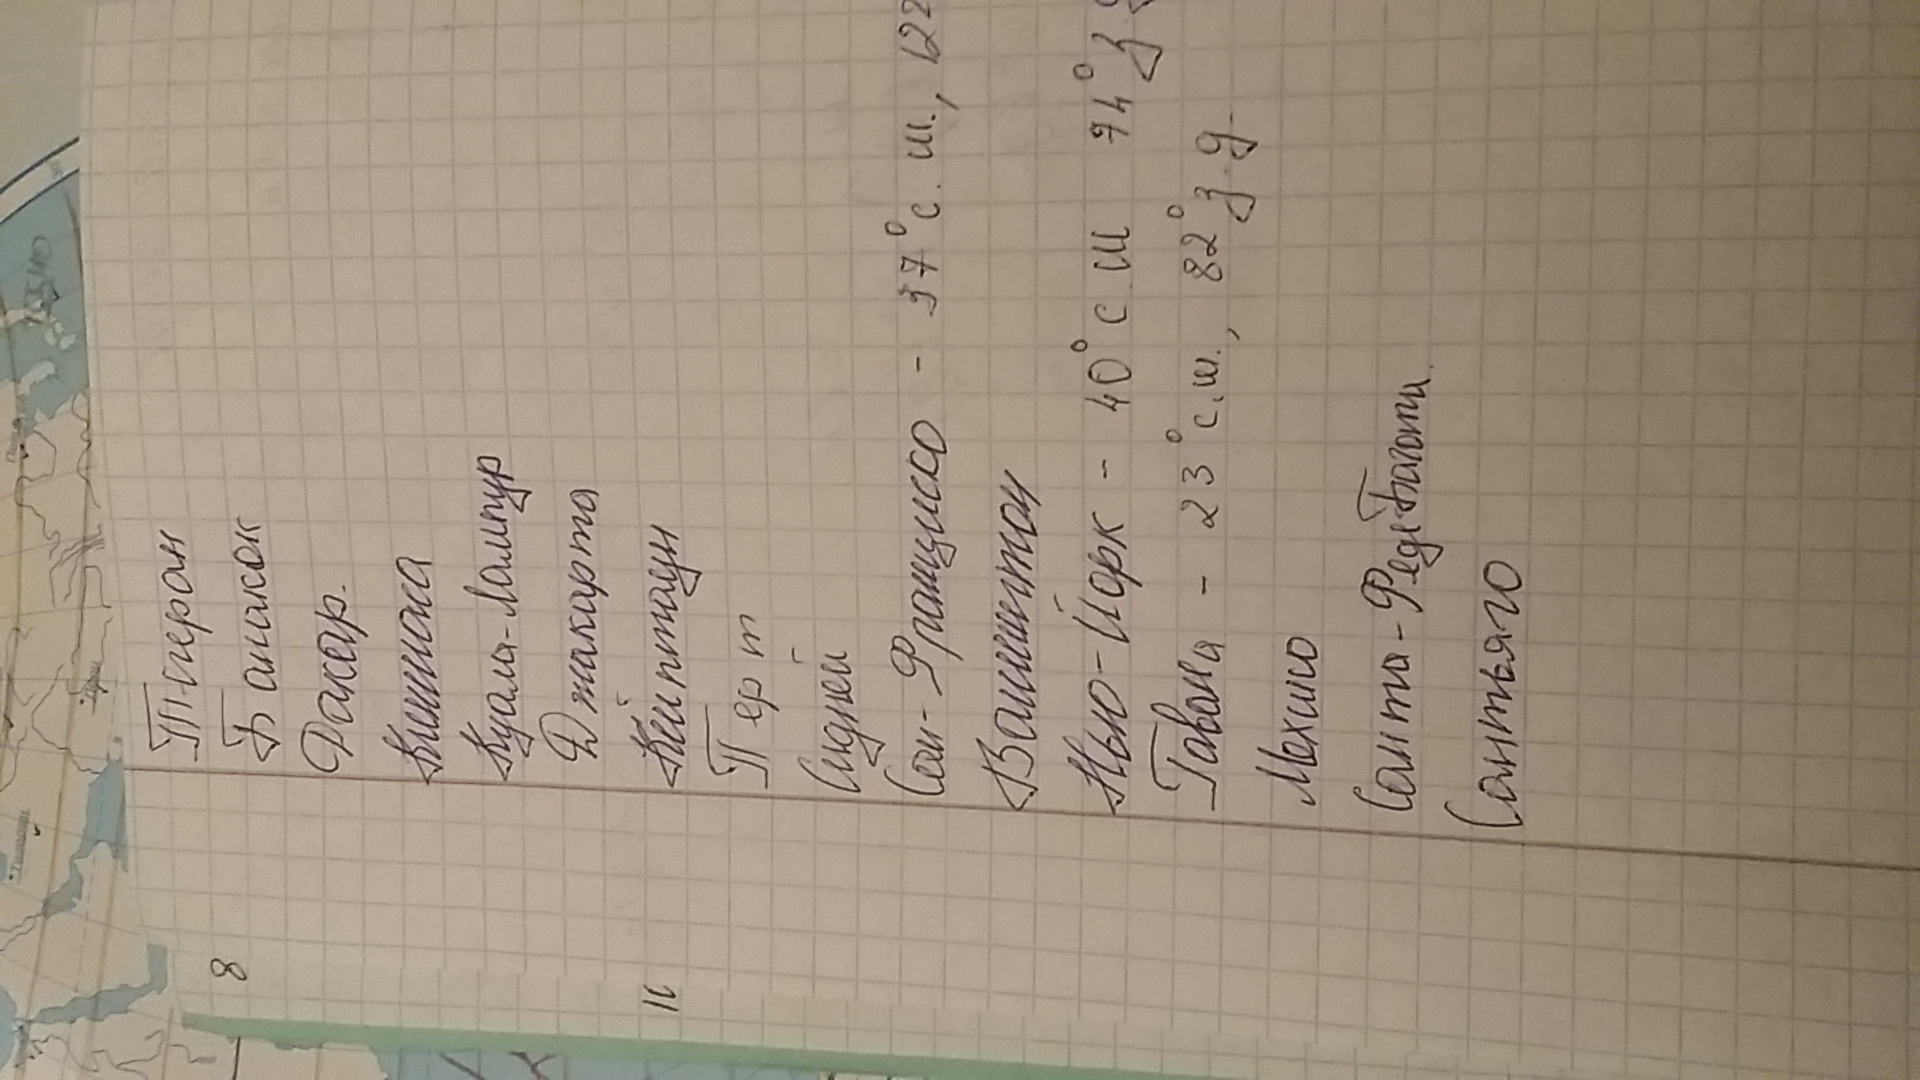 Тегеран
Банкок
Дакар.
Киншаса
Куала-Лампур
Джакарта
Кейптаун
Перт
Сидней
Сан-Франциско - 37° с. ш., 122
Вашингтон
Нью-Йорк - 40° с ш 74° з
Гавана - 23° с.ш., 82° з.д.
Мехико
Санта-Фе де Багота.
Сантьяго
8